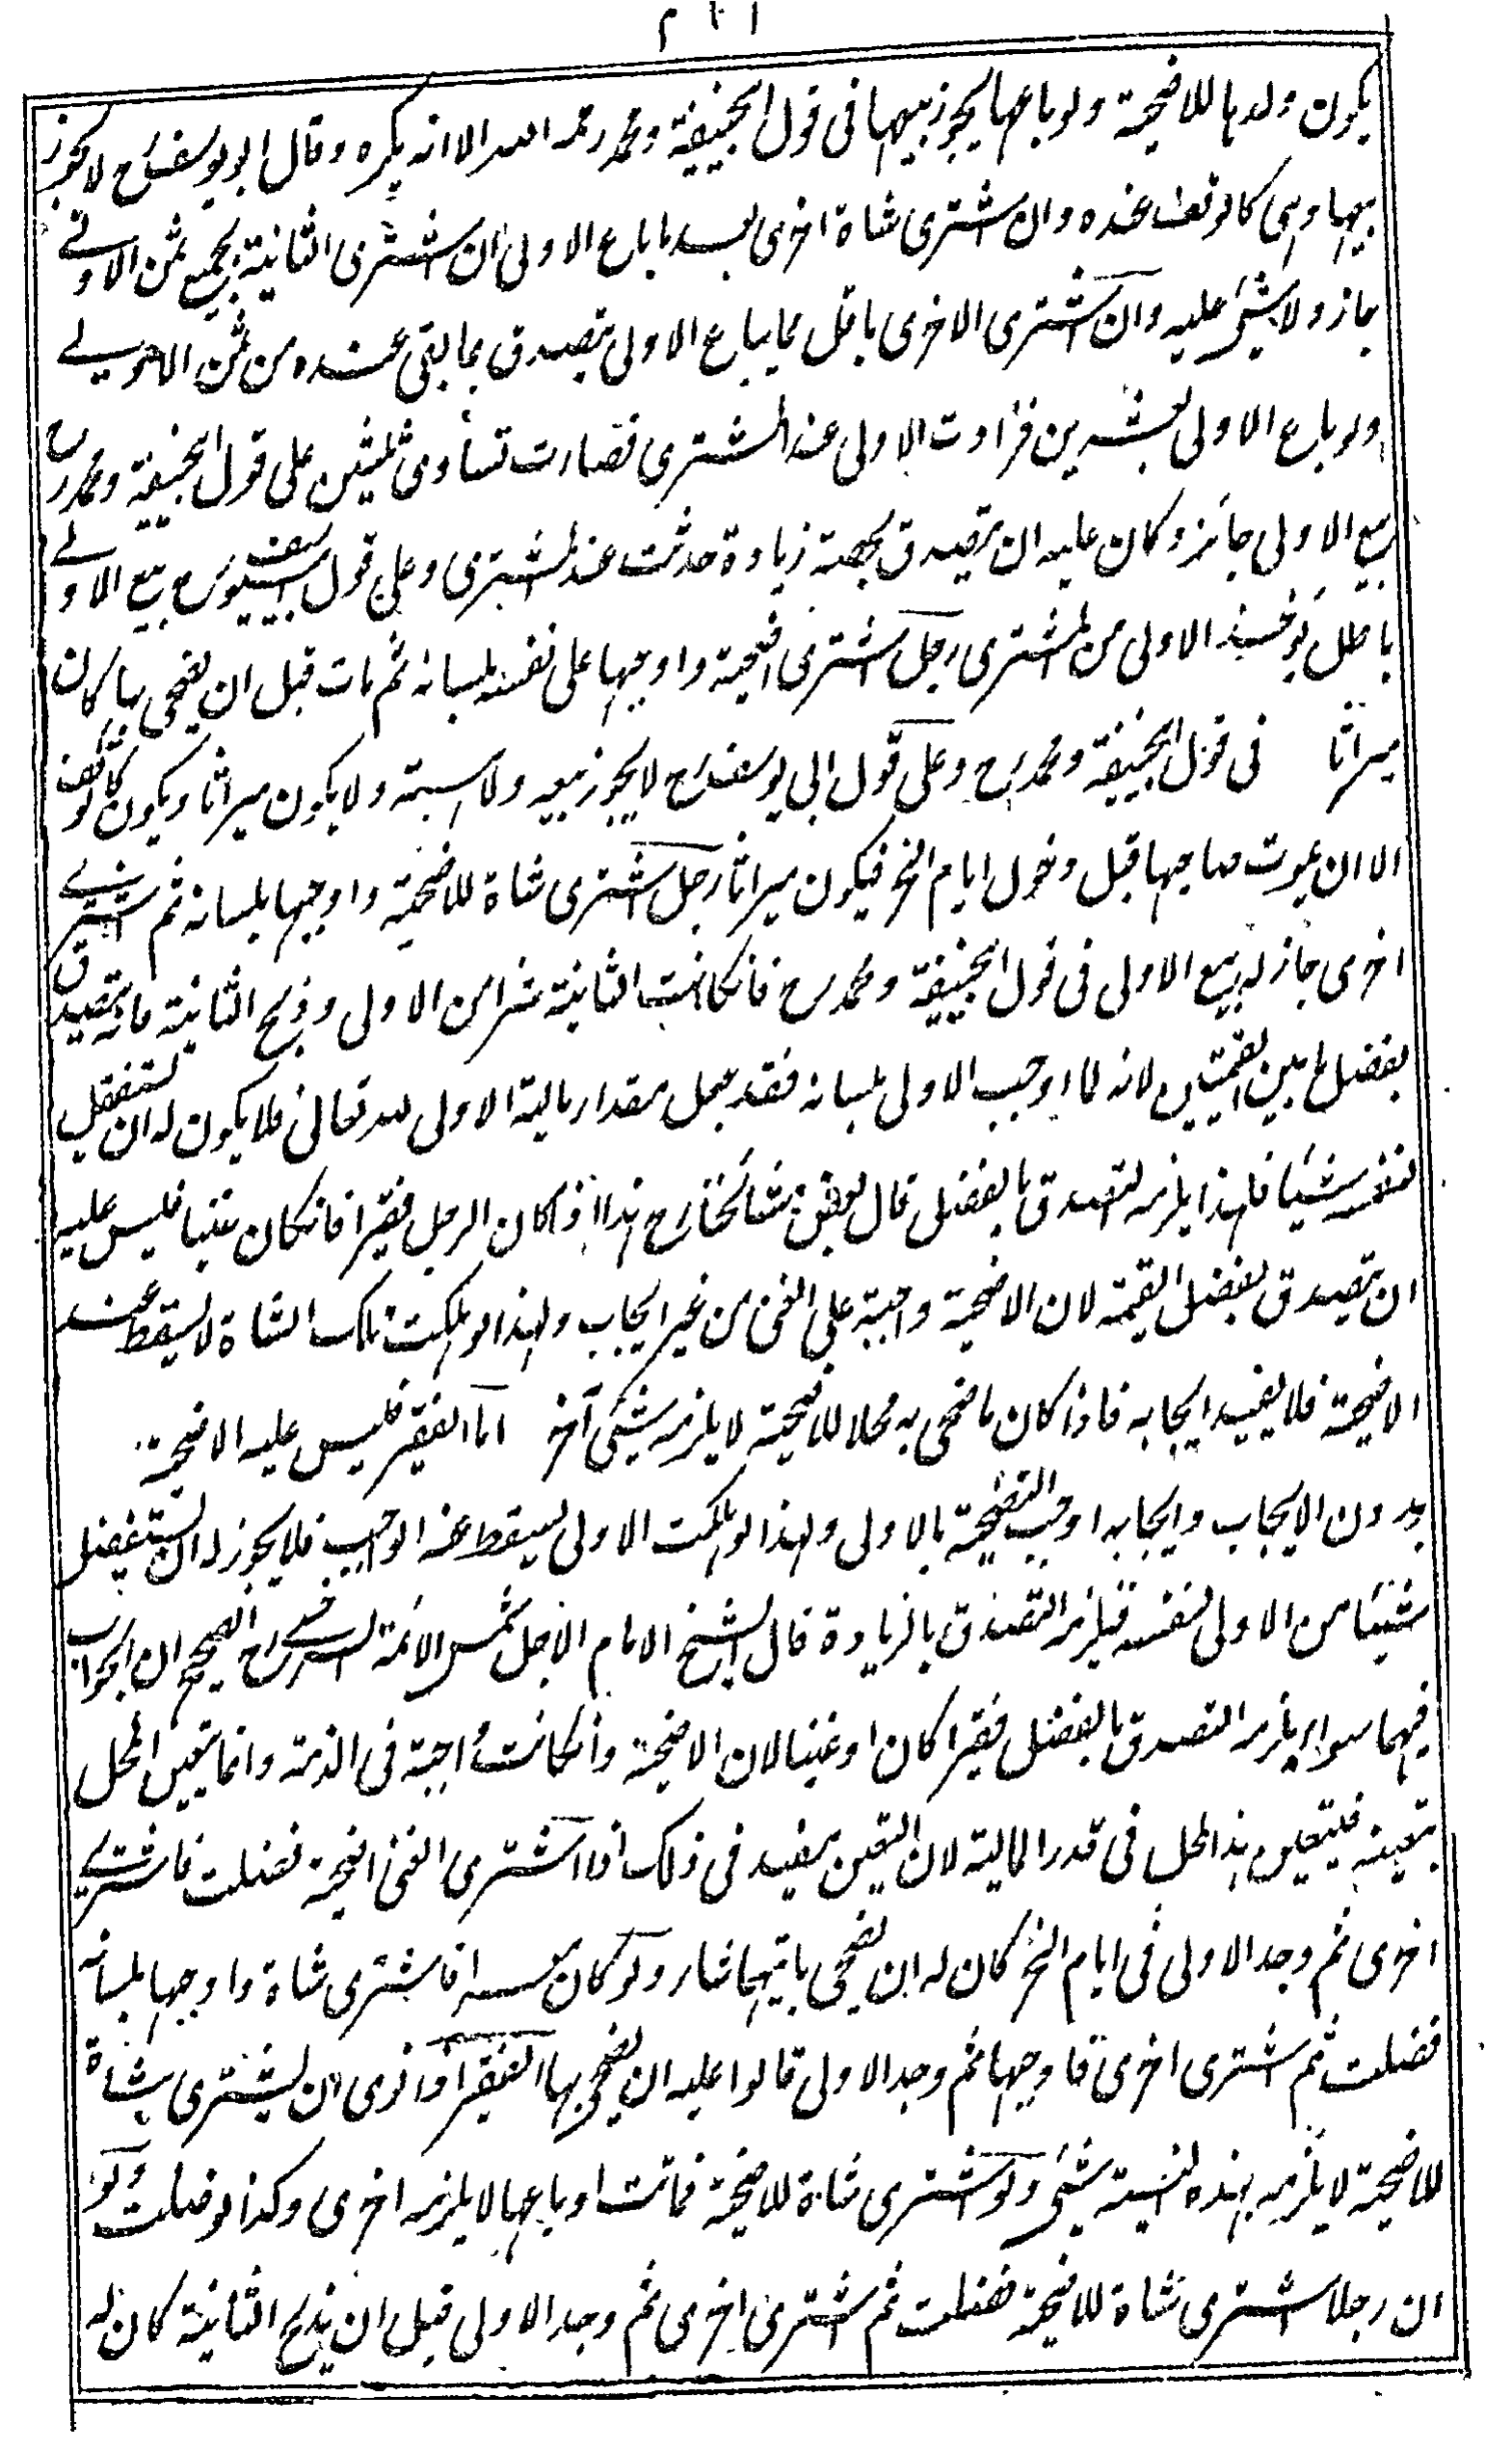 يكون ولدها للاضحية ولو باعها يجوز بيعها فى قول ابحنيفة ومحمد رحمه الله الا انه يكره وقال ابو يوسف رح لا يجوز
بيعها وهى كالوقف عنده وان اشترى شاة اخرى بعد ما باع الاولى ان اشترى الثانية بجميع ثمن الاولے
جاز ولا شئ عليه وان اشترى الاخرى باقل مما باع الاولى يتصدق بما بقى عنده من ثمن الاولے
ولو باع الاولى بعشرين فزادت الاولى عند المشترى فصارت تساوى ثلثين على قول ابحنيفة ومحمد رح
بيع الاولى جائز وكان عليه ان يتصدق بحصة زيادة حدثت عند المشترى وعلى قول ابى يوسف رح بيع الاولے
باطل يؤخذ الاولى من المشترى رجل اشترى اضحية واوجبها على نفسه بلسانه ثم مات قبل ان يضحى بها كان
ميراثا فى قول ابحنيفة ومحمد رح وعلى قول ابى يوسف رح لا يجوز بيعه ولا هبته ولا يكون ميراثا ويكون كالوقف
الا ان يموت صاحبها قبل دخول ايام النحر فيكون ميراثا رجل اشترى شاة للاضحية واوجبها بلسانه ثم اشترے
اخرى جاز له بيع الاولى فى قول ابحنيفة ومحمد رح فانكانت الثانية شرا من الاولى وذبح الثانية فانه يتصدق
بفضل ما بين القيمتين لانه لما اوجب الاولى بلسانه فقد جعل مقدار مالية الاولى لله تعالى فلا يكون له ان يستفضل
لنفسه شيئا فلهذا يلزمه التصدق بالفضل قال بعض مشائخنا رح هذا اذا كان الرجل فقيرا فانكان غنيا فليس عليه
ان يتصدق بفضل القيمة لان الاضحية واجبة على الغنى من غير ايجاب ولهذا لو هلكت تلك الشاة لا يسقط عنه
الاضحية فلا يفيد ايجابه فاذا كان ما ضحى به محلا للاضحية لا يلزمه شئ آخر اما الفقير فليس عليه الاضحية
بدون الايجاب وايجابه اوجب التضحية بالاولى ولهذا لو هلكت الاولى يسقط عنه الواجب فلا يجوز له ان يستفضل
شيئا من الاولى لنفسه فيلزمه التصدق بالزيادة قال الشيخ الامام الاجل شمس الائمة السرخسے رح الصحيح ان الجواب
فيهما سواء يلزمه التصدق بالفضل فقيرا كان او غنيا لان الاضحية وانكانت واجبة فى الذمة وانما يتعين المحل
بتعينه فيتعين هذا المحل فى قدر المالية لان التعين يفيد فى ذلك اذا اشترى الغنى اضحية فضلت فاشترے
اخرى ثم وجد الاولى فى ايام النحر كان له ان يضحى بايتهما شاء ولو كان معسرا فاشترى شاة واوجبها بلسانه
فضلت ثم اشترى اخرى فاوجبها ثم وجد الاولى قالوا عليه ان يضحى بهما الفقير اذا نوى ان يشترى شاة
للاضحية لا يلزمه بهذه النية شئ ولو اشترى شاة للاضحية فماتت او باعها لا يلزمه اخرى وكذا لو ضلت ولو
ان رجلا اشترى شاة للاضحية فضلت ثم اشترى اخرى ثم وجد الاولى قبل ان يذبح الثانية كان له